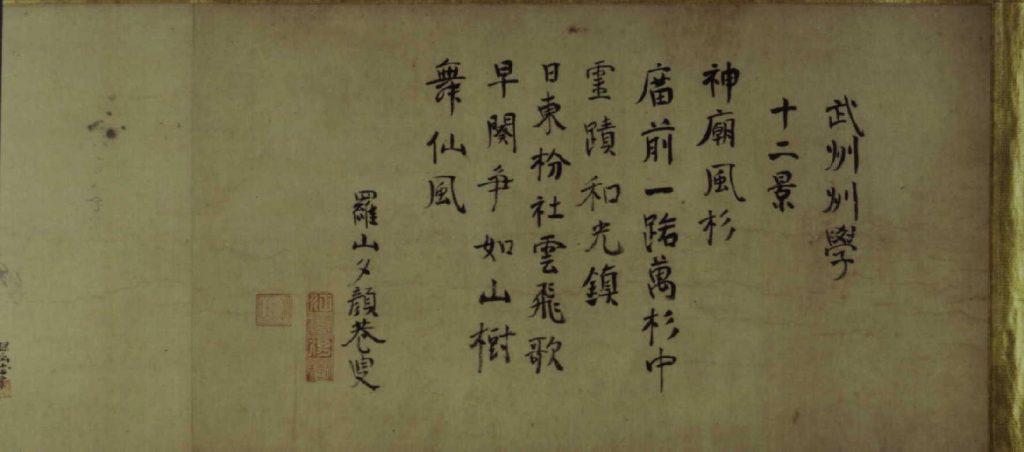 武州州學
十二景
神廟風杉
庿前一路萬杉中
霊蹟和光鎮
日東枌社雲飛歌
早闋爭如山樹
舞仙風
羅山夕顏巷叟